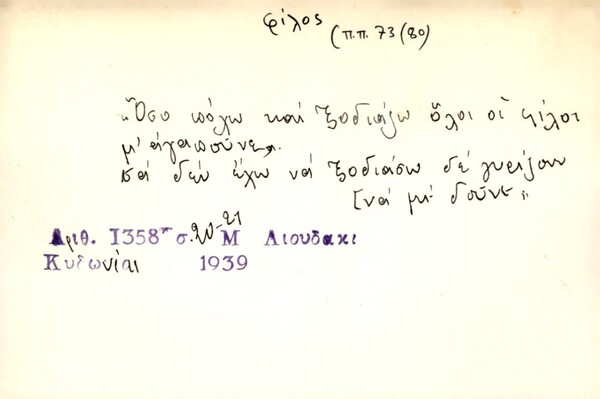 φίλος (π.π. 73/80)
"Όσο κάλω και ξοδιάζω όλοι οι φίλοι
μ' αγαπούνε,
κά δεν έχω νά ξοδιάσω δέ γυρίζουν
[νά με δούνε"
Αριθ. 1358 σ. 20-21 Μ Λιουδακι
Κυδωνίαι 1939